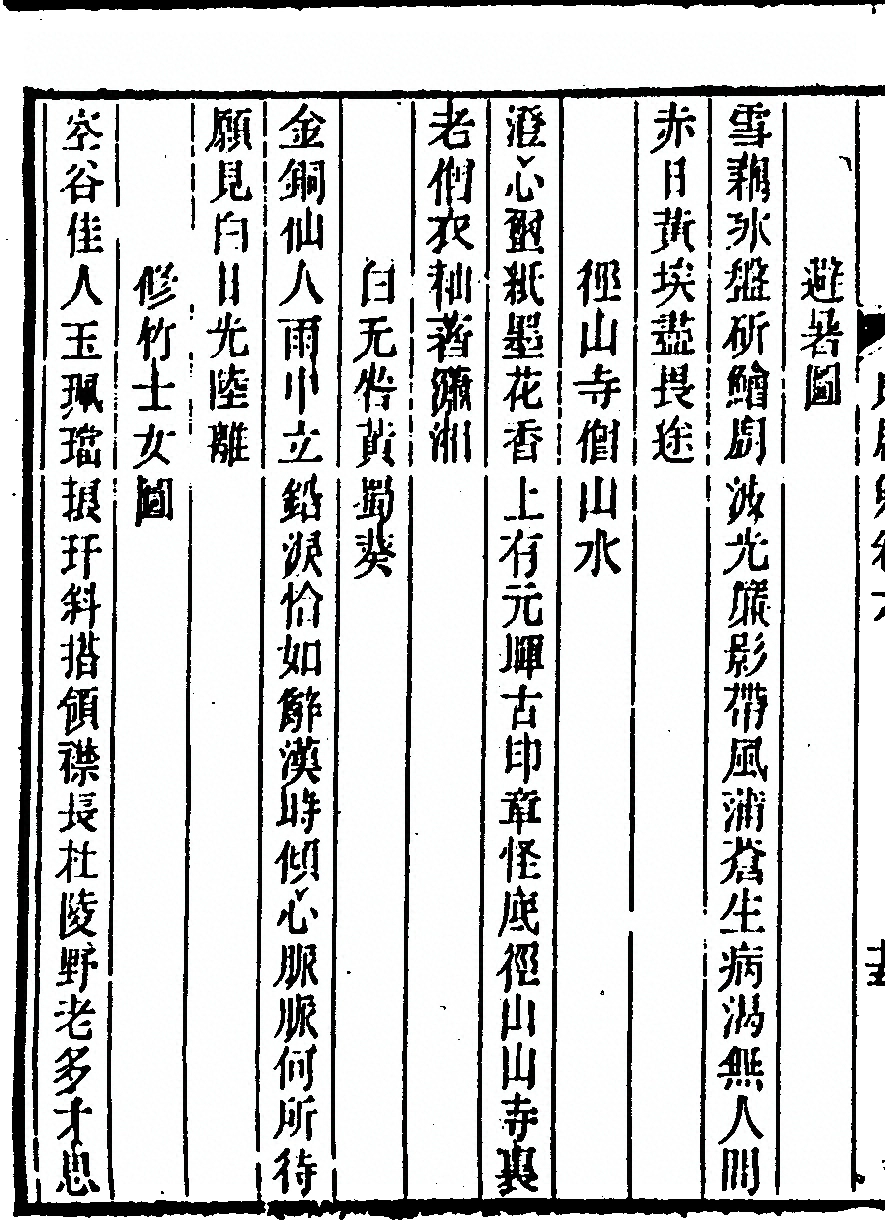 避暑圖
雪藕冰盤斫鱠廚波光簾影帶風蒲蒼生病渴無人問
赤日黃埃盡畏途
徑山寺僧山水
澄心堅紙墨花香上有元暉古印章怪底徑山山寺裏
老僧衣袖著瀟湘
白无咎黃蜀葵
金銅仙人雨中立鉛淚恰如辭漢時傾心脈脈何所待
願見白日光陸離
修竹士女圖
空谷佳人玉珮璫振玕斜搭領襟長杜陵野老多才思